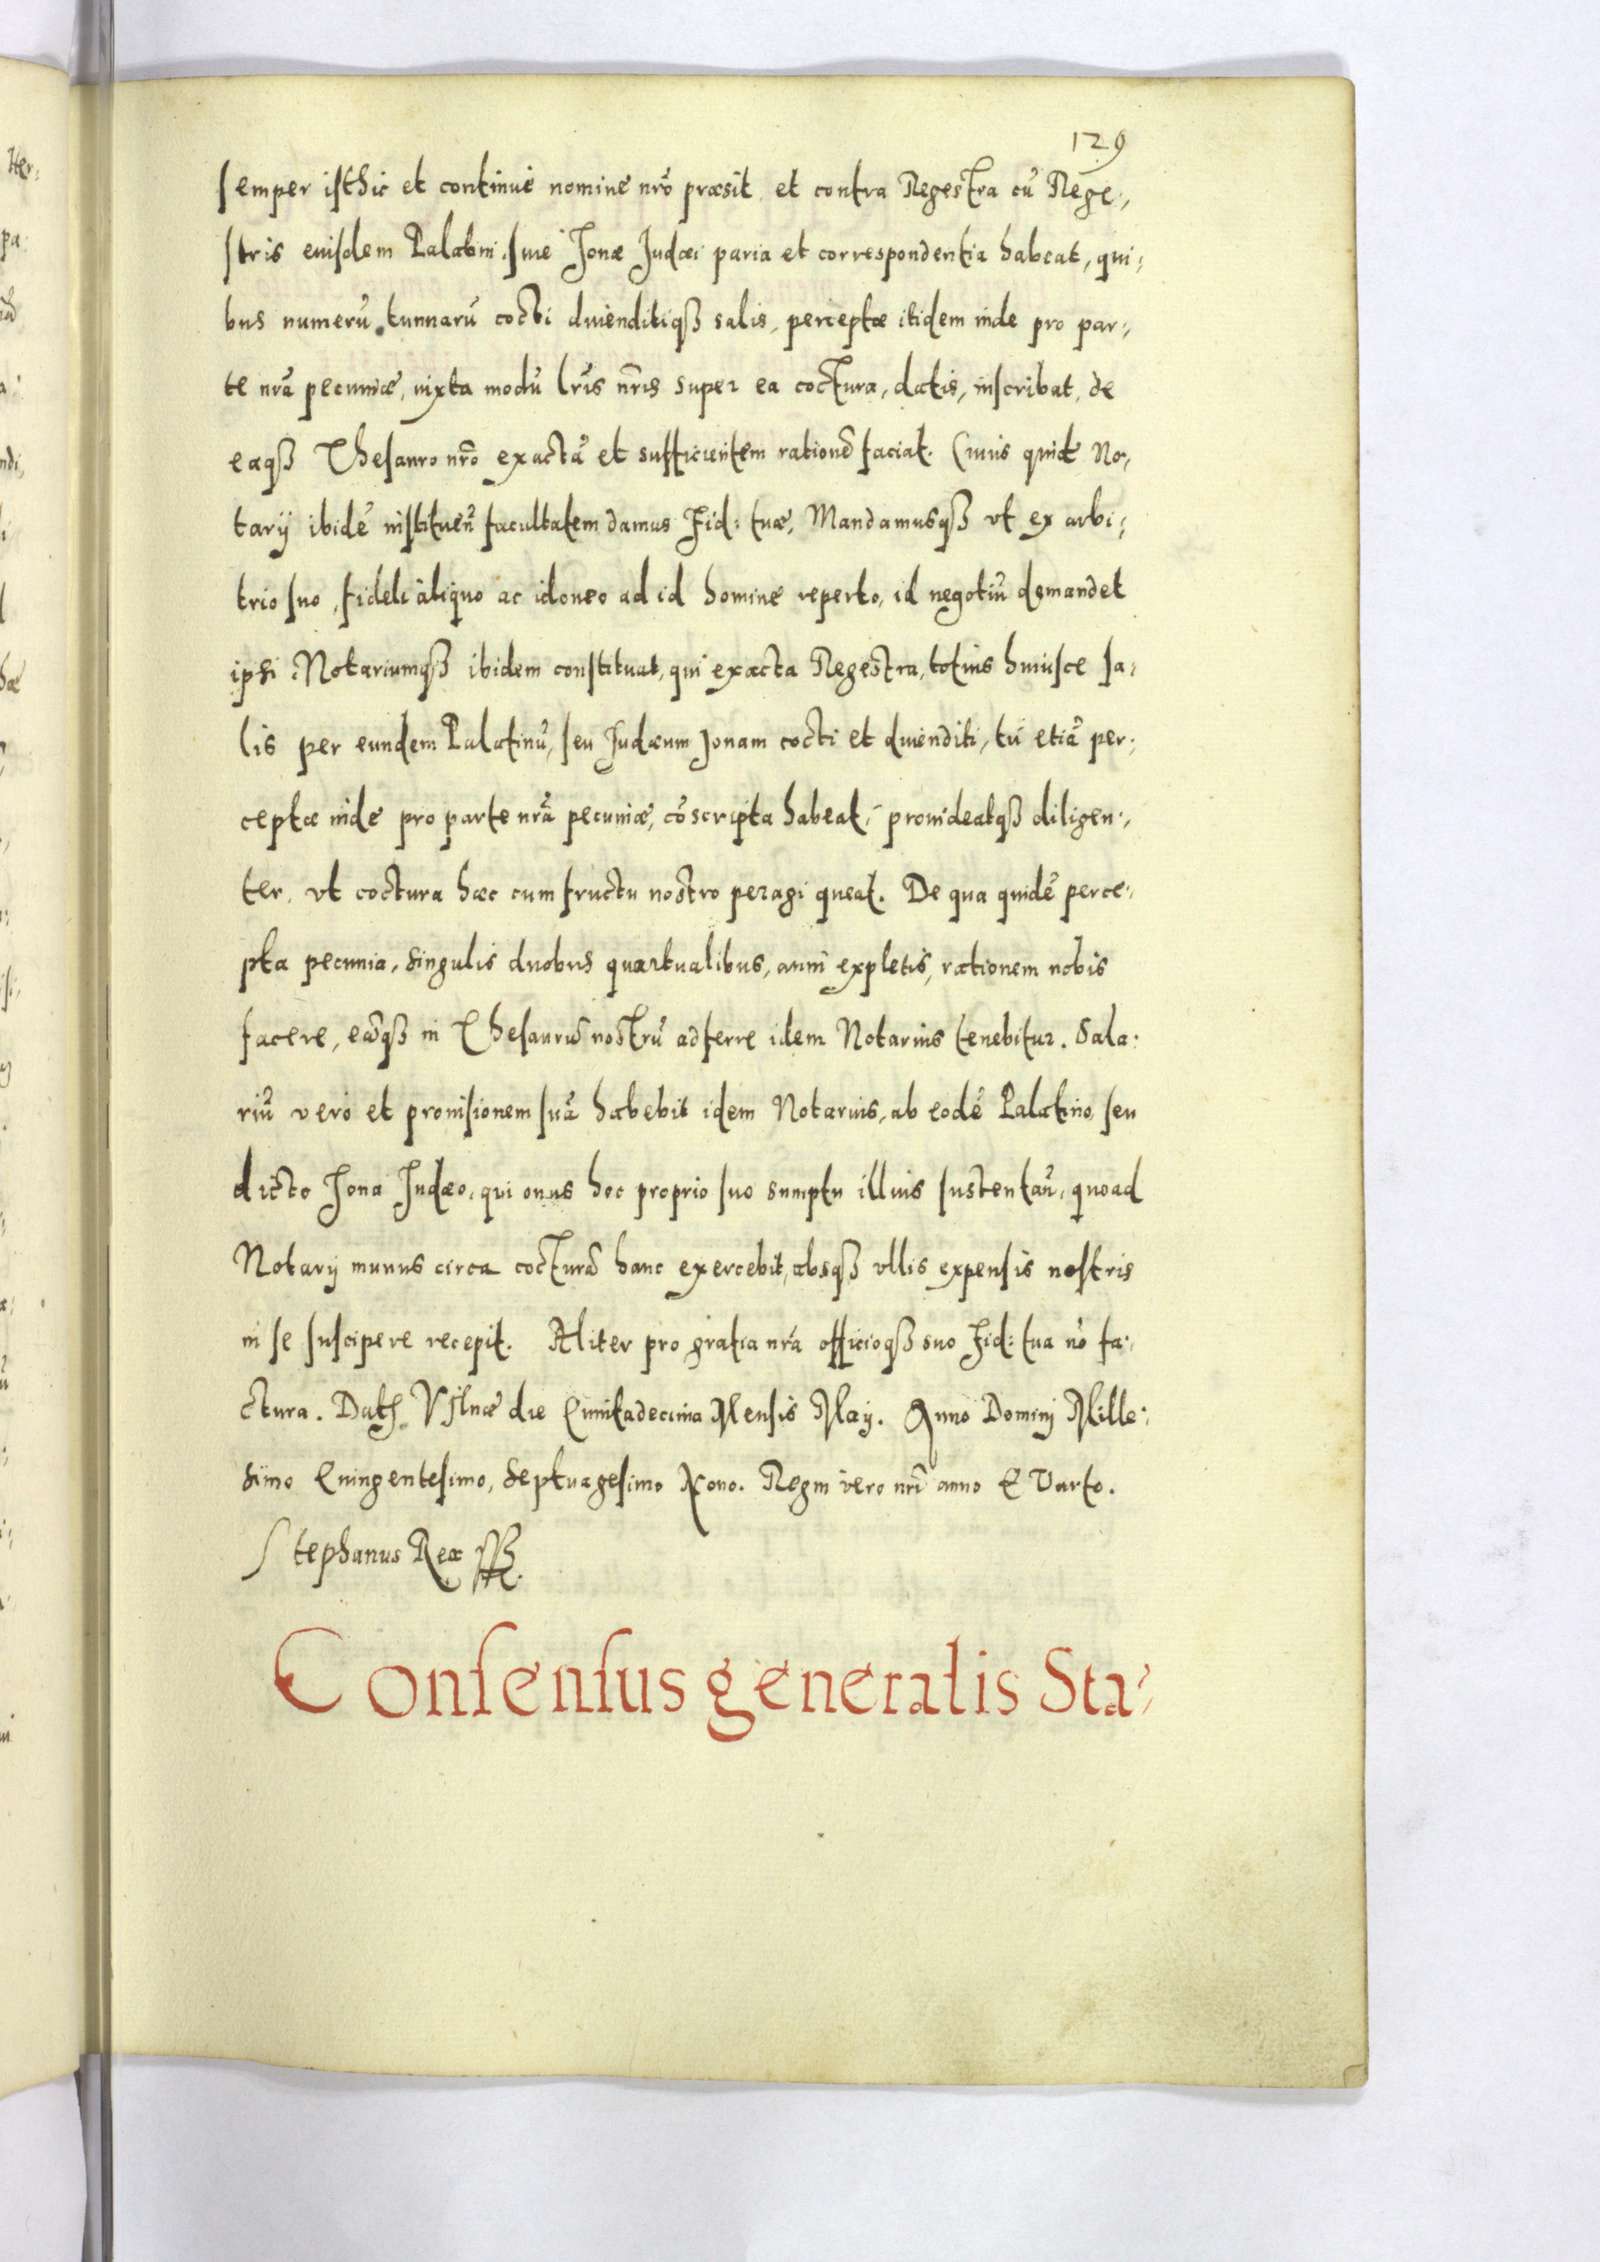 129
semper isthic et continue nomine nrõ præsit et contra Regestra cũ Rege-,
stris eiusdem Palatini, siue Jonæ Judæi paria et correspondentia habeat, qui-,
bus numerũ tunnarũ cocti diuenditiqꝫ salis, perceptæ itidem inde pro par-,
te nrã pecuniæ, iuxta modũ lrĩs nrĩs super ea coctura, datis, inscribat, de
eaqꝫ Thesauro nrõ exactã et sufficientem rationẽ faciat. Cuius quid No-,
tarij ibidẽ instituen̄ facultatem damus Fid: tuæ, Mandamusqꝫ vt ex arbi-,
trio suo, fideli aliquo ac idoneo ad id homine reperto, id negotiũ demandet
ipsi Notariumqꝫ ibidem constituat, qui exacta Regestra, totius huiusce sa-,
lis per eundem Palatinũ, seu Judæum Jonam cocti et diuenditi, tũ etiã per-,
ceptæ inde pro parte nrã pecuniæ, cõscripta habeat, prouideatqꝫ diligen-,
ter, vt coctura hæc cum fructu nostro peragi queat. De qua quidẽ perce-,
pta pecunia, singulis duobus quartualibus, anni expletis, rationem nobis
facere, eãqꝫ in Thesaurũ nostrũ adferre idem Notarius tenebitur. Sala-
riũ vero et prouisionem suã habebit idem Notarius, ab eodẽ Palatino, seu
dicto Jona Judæo, qui onus hoc proprio suo sumptu illius sustentan̄, quoad
Notarij munus circa cocturã hanc exercebit, absqꝫ vllis expensis nostris
in se suscipere recepit. Aliter pro gratia nrã officioqꝫ suo Fid: tua nõ fa-,
ctura. Dat. Vilnæ die Quintadecima Mensis Maij. Anno Dominj Mille-,
simo Quingentesimo, Septuagesimo Nono. Regni vero nrĩ anno Quarto.
Stephanus Rex
Consensus generalis Sta-,